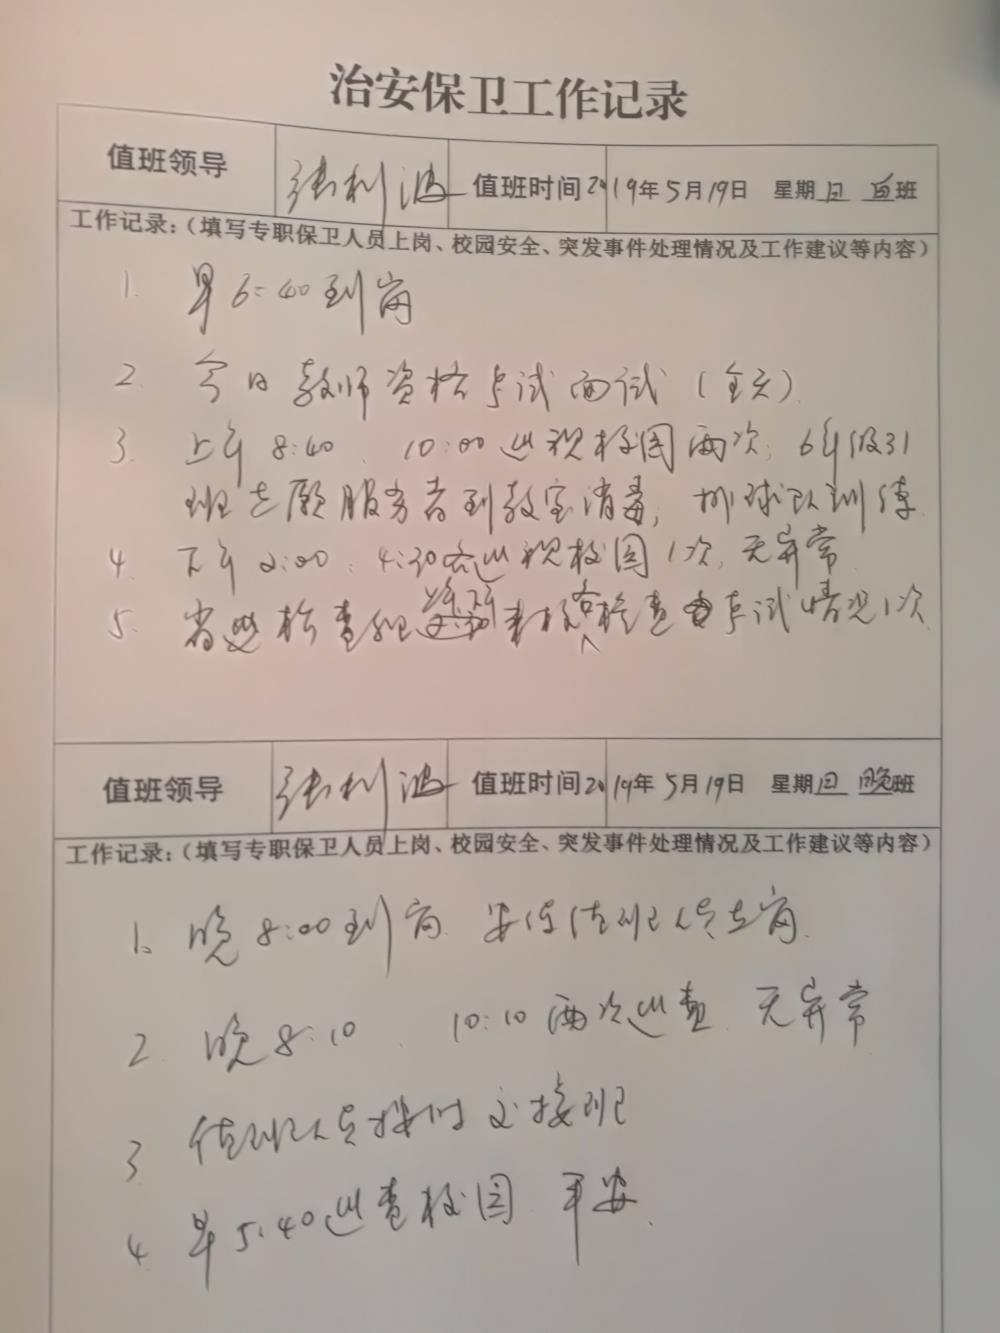 治安保卫工作记录
值班领导 张利波 值班时间 2019年5月19日 星期日 白班
工作记录：（填写专职保卫人员上岗、校园安全、突发事件处理情况及工作建议等内容）
1. 早6:40到岗
2. 今日教师资格考试面试（全天）
3. 上午8:40、10:00巡视校园两次，6年级31
班志愿服务者到教室消毒，排球队训练
4. 下午2:00、4:30各巡视校园1次，无异常
5. 省巡检查组来校各检查考试情况1次
值班领导 张利波 值班时间 2019年5月19日 星期日 晚班
工作记录：（填写专职保卫人员上岗、校园安全、突发事件处理情况及工作建议等内容）
1. 晚8:00到岗 安保值班人员在岗.
2. 晚8:10、10:10两次巡查 无异常
3 值班人员按时交接班
4. 早5:40巡查校园 平安、